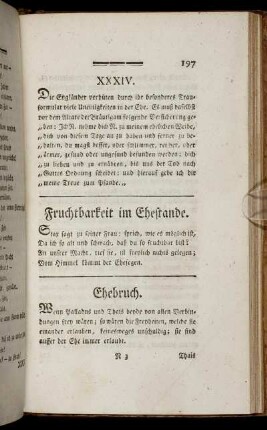 197
XXXIV.
Die Engländer verhüten durch ihr besonderes Trau-
formular viele Uneinigkeiten in der Ehe. Es muß daselbst
vor dem Altare der Bräutigam folgende Versicherung ge-
„ben: Ich N. nehme dich N. zu meinem ehelichen Weibe,
„dich von diesem Tage an zu haben und zu behal-
„ten, du magst besser, oder schlimmer, reicher, oder
„ärmer, gesund oder ungesund befunden werden; dich
„zu lieben und zu ernähren, bis uns der Tod nach
„Gottes Ordnung scheidet: und hierauf gebe ich dir
„meine Treue zum Pfande.“
Fruchtbarkeit im Ehestande.
Stax sagt zu seiner Frau: sprich, wie es möglich ist,
Da ich so alt und schwach, daß du so fruchtbar bist?
An unsrer Macht, rief sie, ist freylich nichts gelegen;
Vom Himmel kömmt der Ehesegen.
Ehebruch.
Wenn Palladus und Thais beyde von allen Verbin-
dungen frey wären; so wären die Freyheiten, welche sie
einander erlauben, keineswegs unschuldig; sie sind
ausser der Ehe immer
N 3 Thais